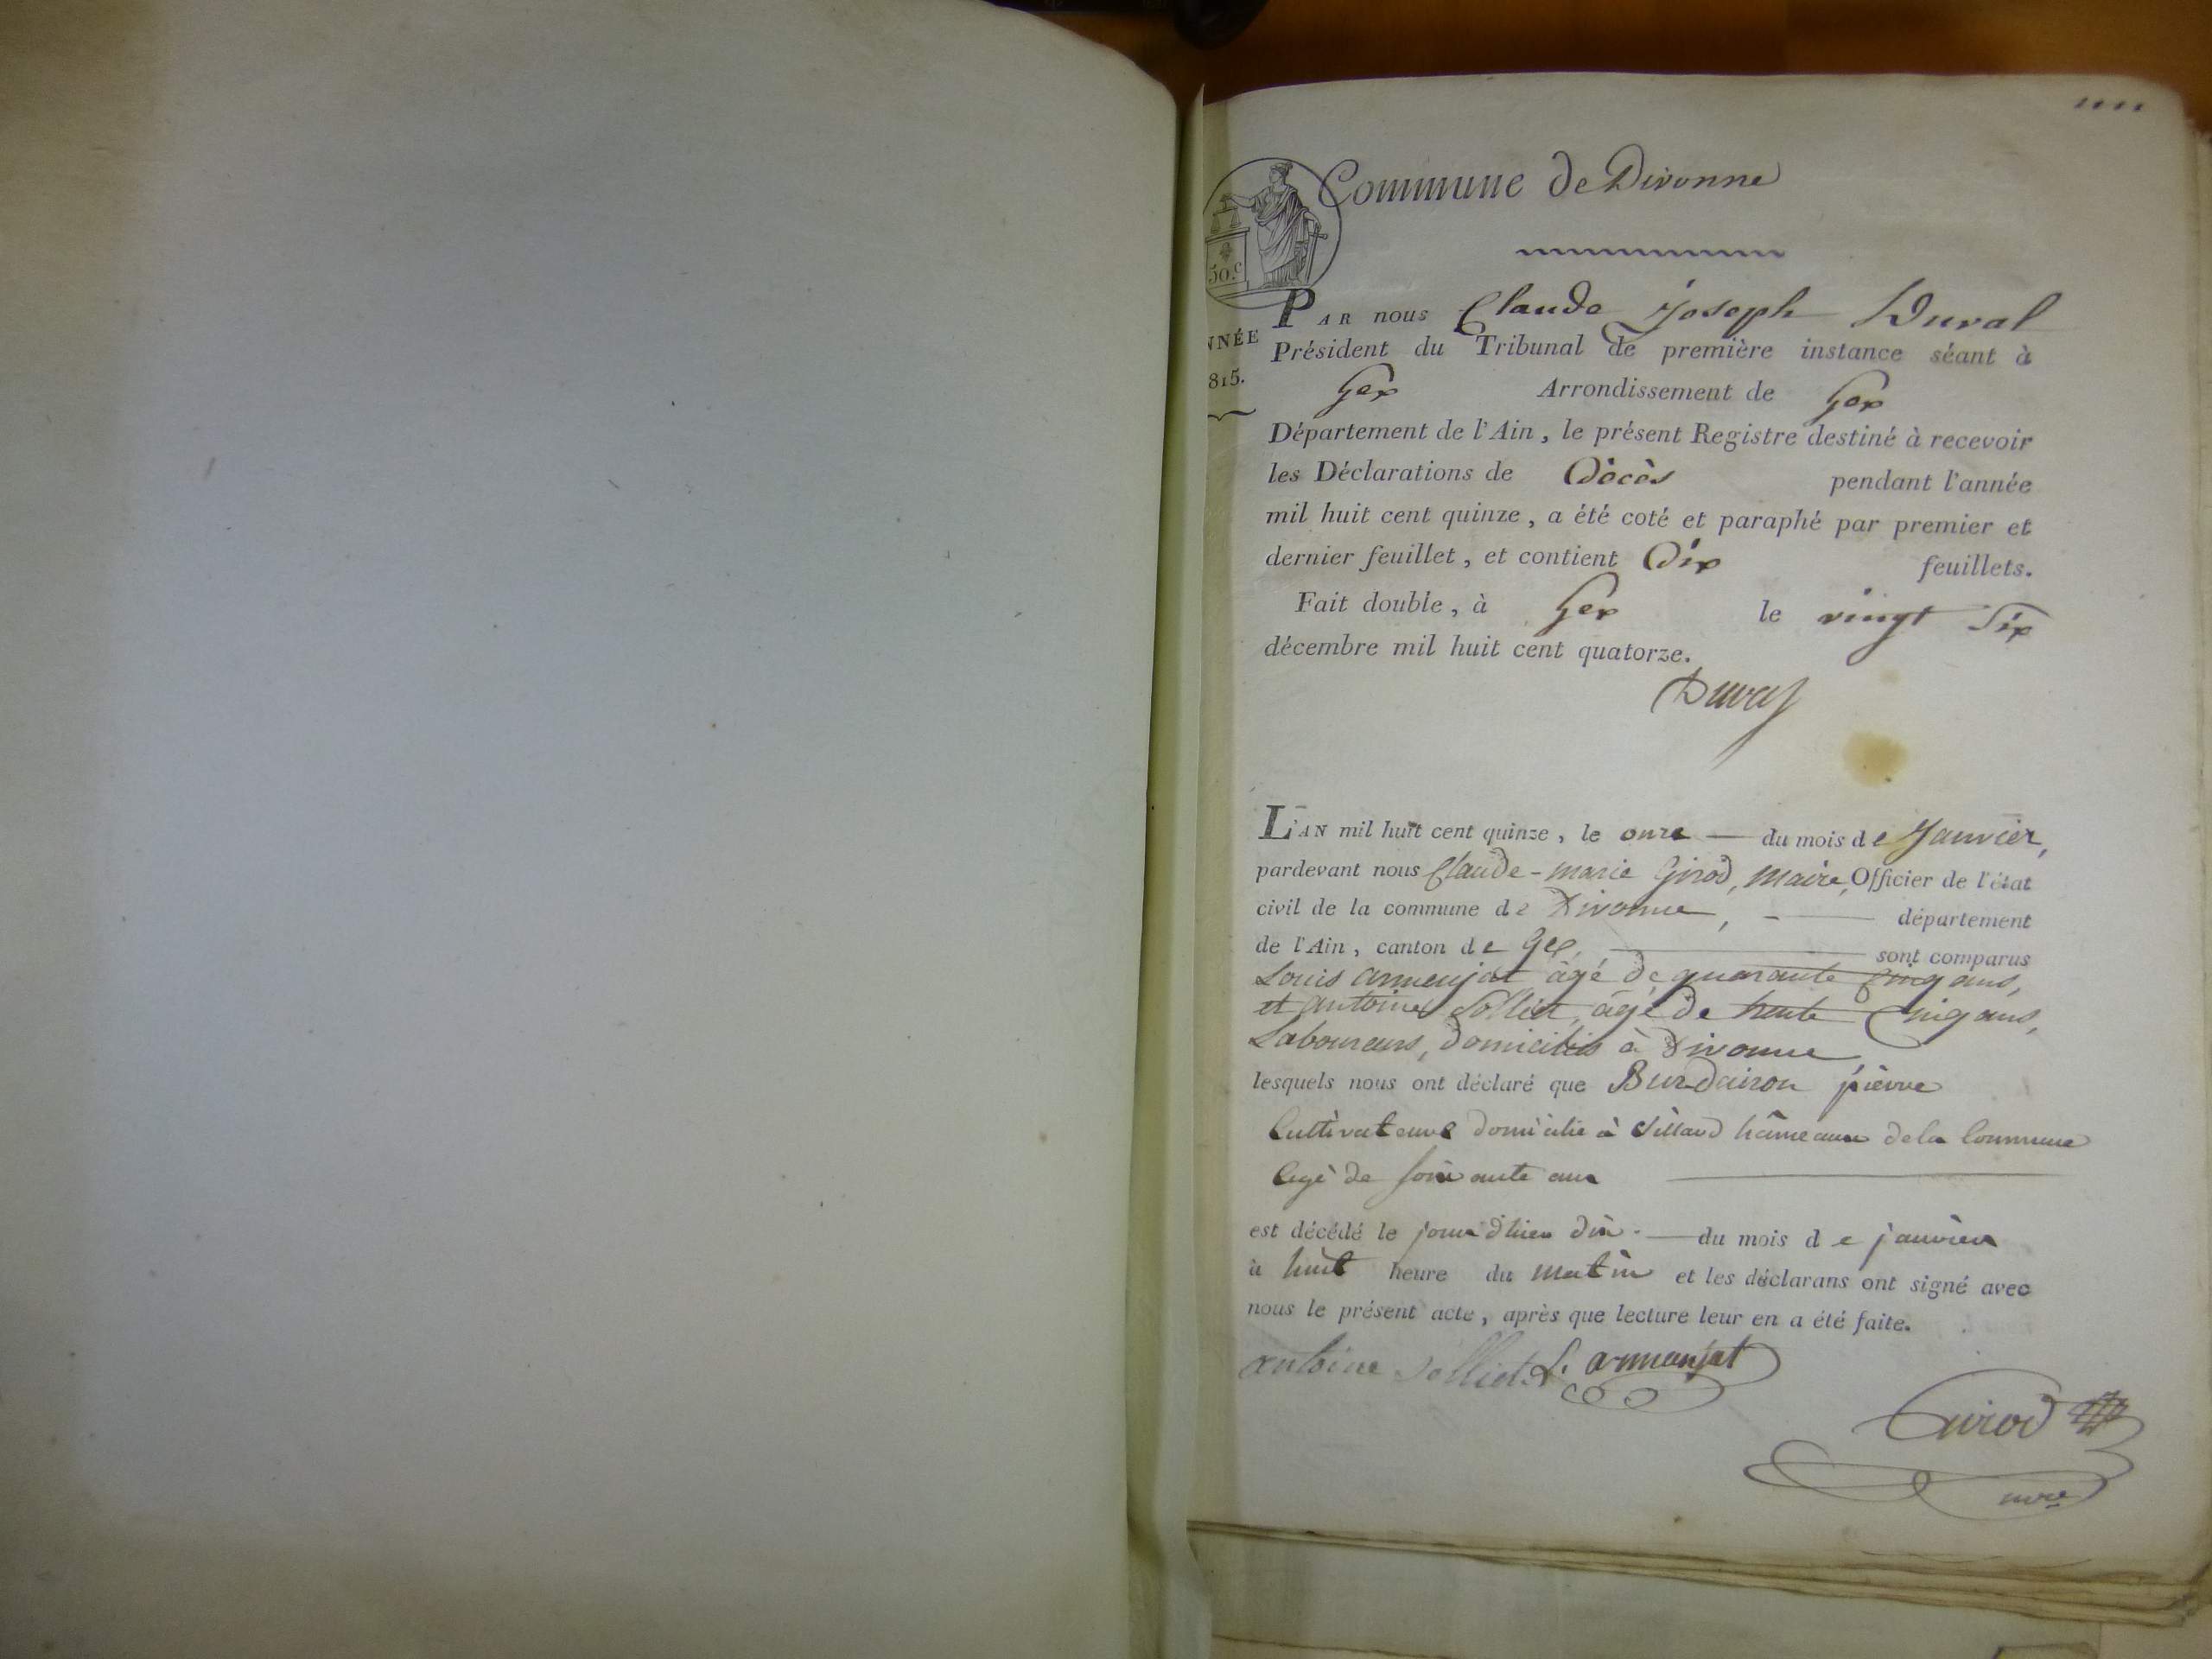 Commune de Divonne
50.c
NNÉE
815.
PAR nous Claude Joseph Duval
Président du Tribunal de première instance séant à
Gex Arrondissement de Gex
Département de l'Ain, le présent Registre destiné à recevoir
les Déclarations de Décès pendant l'année
mil huit cent quinze, a été coté et paraphé par premier et
dernier feuillet, et contient Dix feuillets.
Fait double, à Gex le vingt Six
décembre mil huit cent quatorze.
Duval
L'AN mil huit cent quinze, le onze — du mois de Janvier,
pardevant nous Claude-marie Girod, Maire, Officier de l'état
civil de la commune de Divonne, — département
de l'Ain, canton de Gex, — sont comparus
Louis armenjat âgé de quarante cinq ans,
et antoine Solliet, âgé de trente Cinq ans,
Laboureurs, domiciliés à Divonne,
lesquels nous ont déclaré que Burdairon pierre
Cultivateur domicilié à hâmeaux de la Commune
agé de soixante ans
est décédé le jour d'hier dix — du mois de janvier
à huit heure du matin et les déclarans ont signé avec
nous le présent acte, après que lecture leur en a été faite.
antoine Solliet L. armanjat
Girod